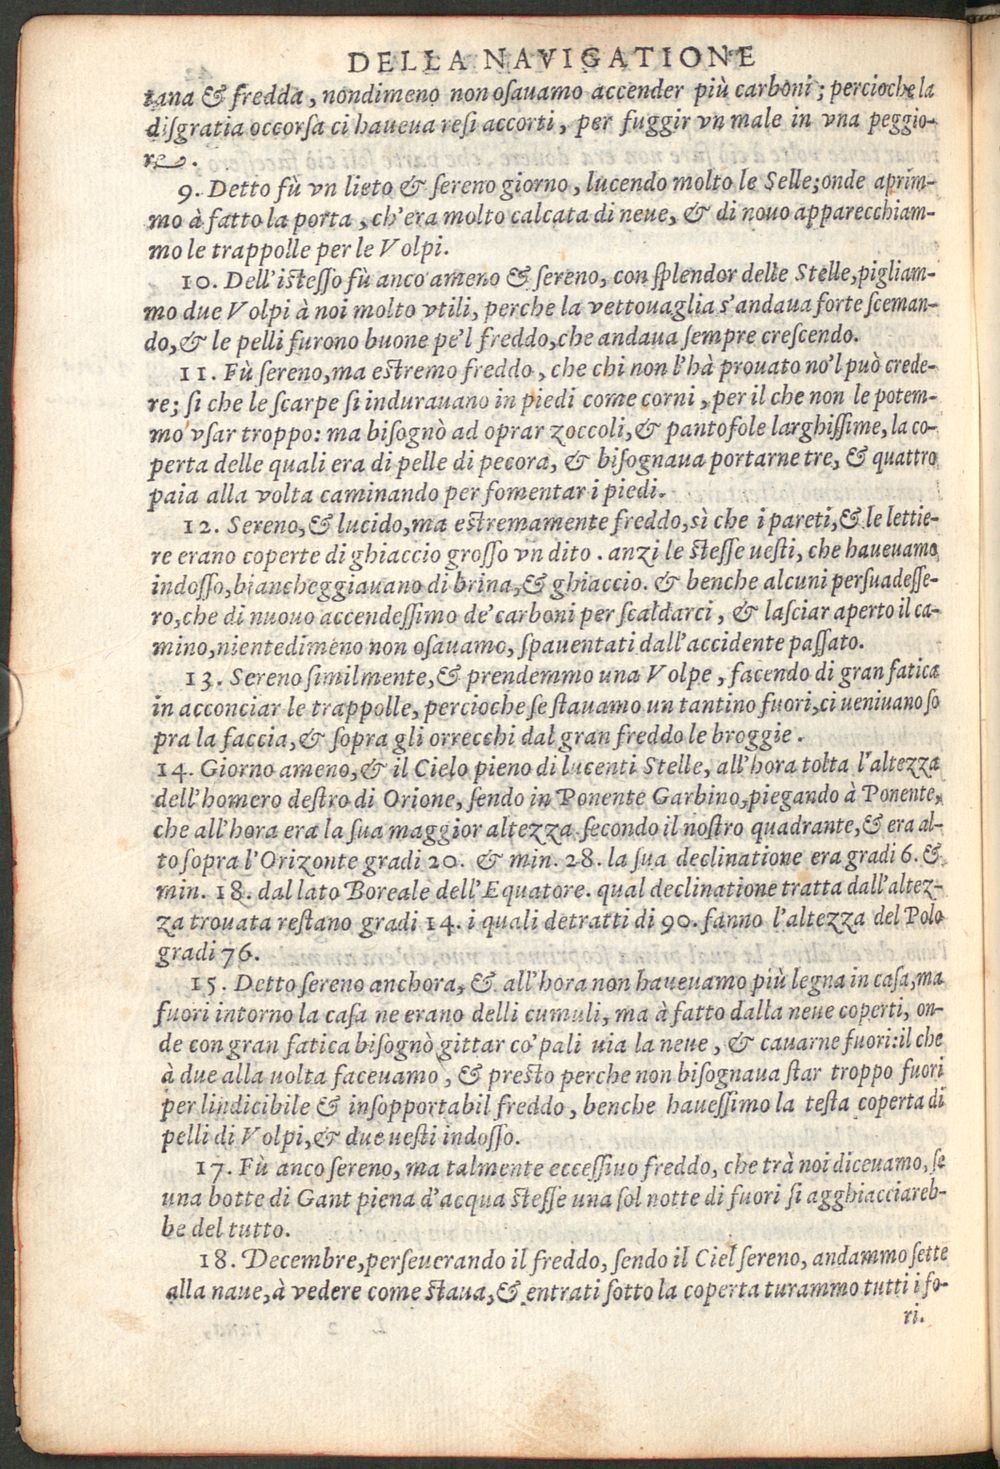 DELLA NAVIGATIONE
tana & fredda, nondimeno non osauamo accender più carboni; percioche la
disgratia occorsa ci haueua resi accorti, per fuggir vn male in vna peggio-
re.
9. Detto fù vn lieto & sereno giorno, lucendo molto le Selle; onde aprim-
mo à fatto la porta, ch'era molto calcata di neue, & di nouo apparecchiam-
mo le trappolle per le Volpi.
10. Dell'istesso fù anco ameno & sereno, con splendor delle Stelle, pigliam-
mo due Volpi à noi molto vtili, perche la vettouaglia s'andaua forte sceman-
do, & le pelli furono buone pe'l freddo, che andaua sempre crescendo.
11. Fù sereno, ma estremo freddo, che chi non l'hà prouato no'l può crede-
re; si che le scarpe si indurauano in piedi come corni, per il che non le potem-
mo vsar troppo: ma bisognò ad oprar zoccoli, & pantofole larghissime, la co-
perta delle quali era di pelle di pecora, & bisognaua portarne tre, & quattro
paia alla volta caminando per fomentar i piedi.
12. Sereno, & lucido, ma estremamente freddo, sì che i pareti, & le lettie-
re erano coperte di ghiaccio grosso vn dito. anzi le stesse uesti, che haueuamo
indosso, biancheggiauano di brina, & ghiaccio. & benche alcuni persuadesse-
ro, che di nuouo accendessimo de' carboni per scaldarci, & lasciar aperto il ca-
mino, nientedimeno non osauamo, spauentati dall'accidente passato.
13. Sereno similmente, & prendemmo una Volpe, facendo di gran fatica
in acconciar le trappolle, percioche se stauamo un tantino fuori, ci ueniuano so
pra la faccia, & sopra gli orrecchi dal gran freddo le broggie.
14. Giorno ameno, & il Cielo pieno di lucenti Stelle, all'hora tolta l'altezza
dell'homero destro di Orione, sendo in Ponente Garbino, piegando à Ponente,
che all'hora era la sua maggior altezza secondo il nostro quadrante, & era al-
to sopra l'Orizonte gradi 20. & min. 28. la sua declinatione era gradi 6. &
min. 18. dal lato Boreale dell'Equatore. qual declinatione tratta dall'altez-
za trouata restano gradi 14. i quali detratti di 90. fanno l'altezza del Polo
gradi 76.
15. Detto sereno anchora, & all'hora non haueuamo più legna in casa, ma
fuori intorno la casa ne erano delli cumuli, ma à fatto dalla neue coperti, on-
de con gran fatica bisognò gittar co' pali uia la neue, & cauarne fuori: il che
à due alla uolta faceuamo, & presto perche non bisognaua star troppo fuori
per lindicibile & insopportabil freddo, benche hauessimo la testa coperta di
pelli di Volpi, & due uesti indosso.
17. Fù anco sereno, ma talmente eccessiuo freddo, che trà noi diceuamo, se
una botte di Gant piena d'acqua stesse una sol notte di fuori si agghiacciareb-
be del tutto.
18. Decembre, perseuerando il freddo, sendo il Ciel sereno, andammo sette
alla naue, à vedere come staua, & entrati sotto la coperta turammo tutti i fo-
ri.